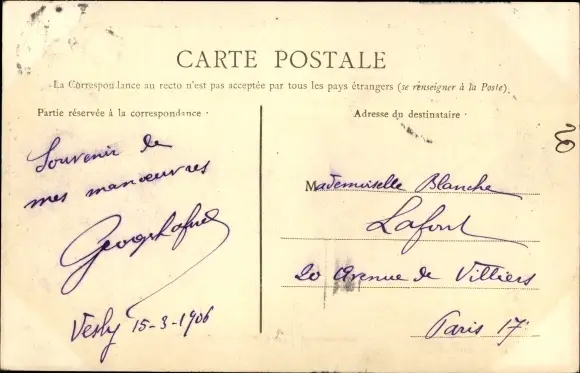 CARTE POSTALE
La Correspondance au recto n'est pas acceptée par tous les pays étrangers (se renseigner à la Poste).
Partie réservée à la correspondance
Souvenir de
mes manœuvres
15-3-1906
Adresse du destinataire
Mademoiselle Blanche
Lafont
20 Avenue de Villiers
Paris 17
20